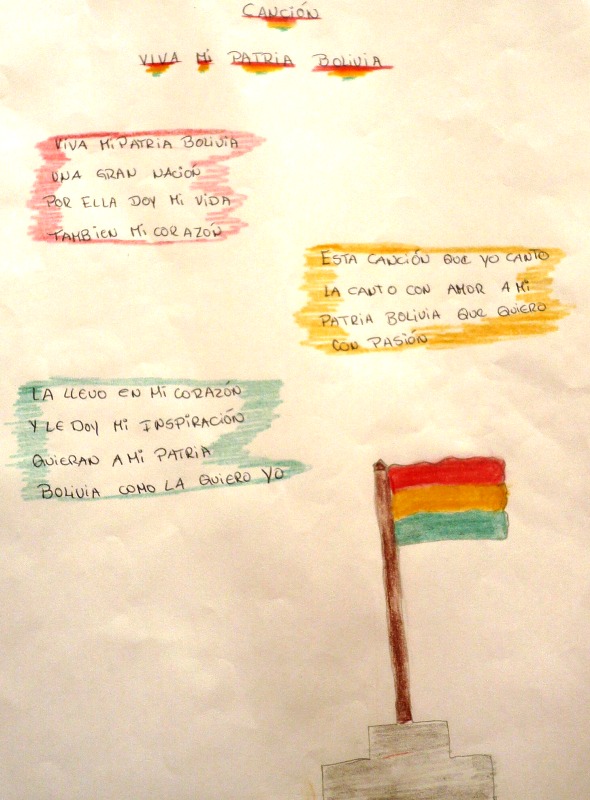 CANCIÓN
VIVA Mi PATRIA BOLIVIA
VIVA Mi PATRIA BOLIVIA
UNA GRAN NACIÓN
POR ELLA DOY Mi VIDA
TAMBIEN Mi CORAZÓN
ESTA CANCIÓN QUE YO CANTO
LA CANTO CON AMOR A Mi
PATRIA BOLIVIA QUE QUIERO
CON PASIÓN
LA LLEVO EN Mi CORAZÓN
Y LE DOY Mi INSPIRACIÓN
QUIERAN A Mi PATRIA
BOLIVIA COMO LA QUIERO YO